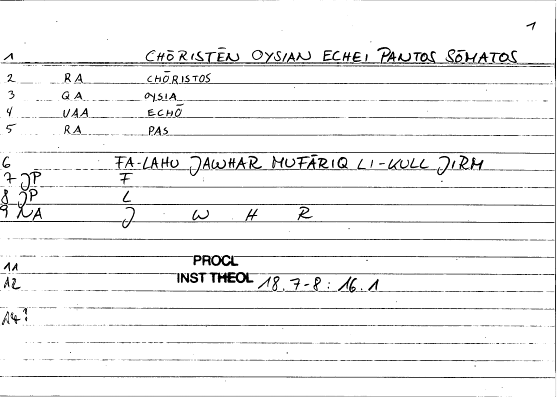 1
1 CHŌRISTĒN OYSIAN ECHEI PANTOS SŌMATOS
2 RA CHŌRISTOS
3 QA OYSIA
4 UAA ECHŌ
5 RA PAS
6 FA-LAHU JAWHAR MUFĀRIQ LI-KULL JIRM
7 JP F
8 JP L
9 NA J W H R
11 PROCL
12 INST THEOL 18.7-8 : 16.1
14?